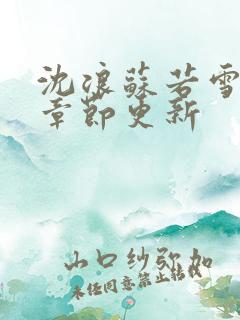 沈浪蘇若雪
章節更新
山口纱弥加
未经同意禁止转载